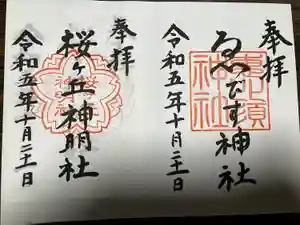 奉拝
ゑびす神社
令和五年十月二十一日
奉拝
桜ヶ丘神明社
令和五年十月二十一日